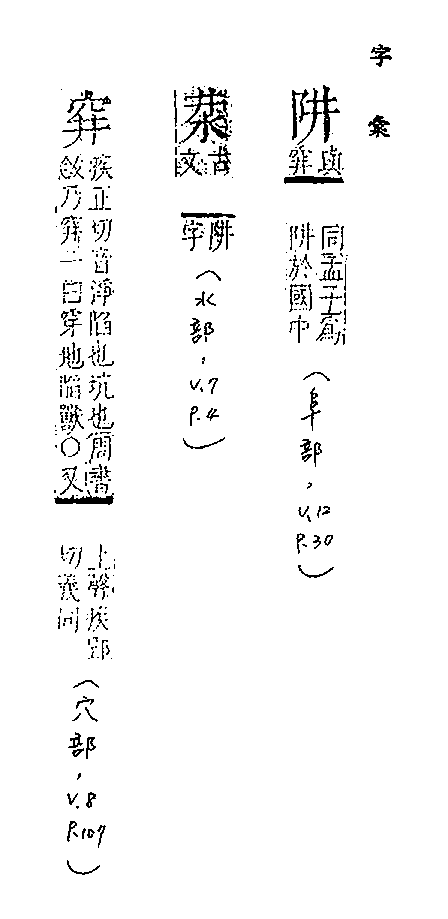 字彙
阱
與穽
同孟子為
阱於國中
(阜部,V.12 P.30)
汬
古文
阱字
(水部,V.7 P.4)
穽
疾正切音淨陷也坑也周書
敜乃穽一曰穿地陷獸○又
上聲疾郢
切義同
(穴部,V.8 P.107)